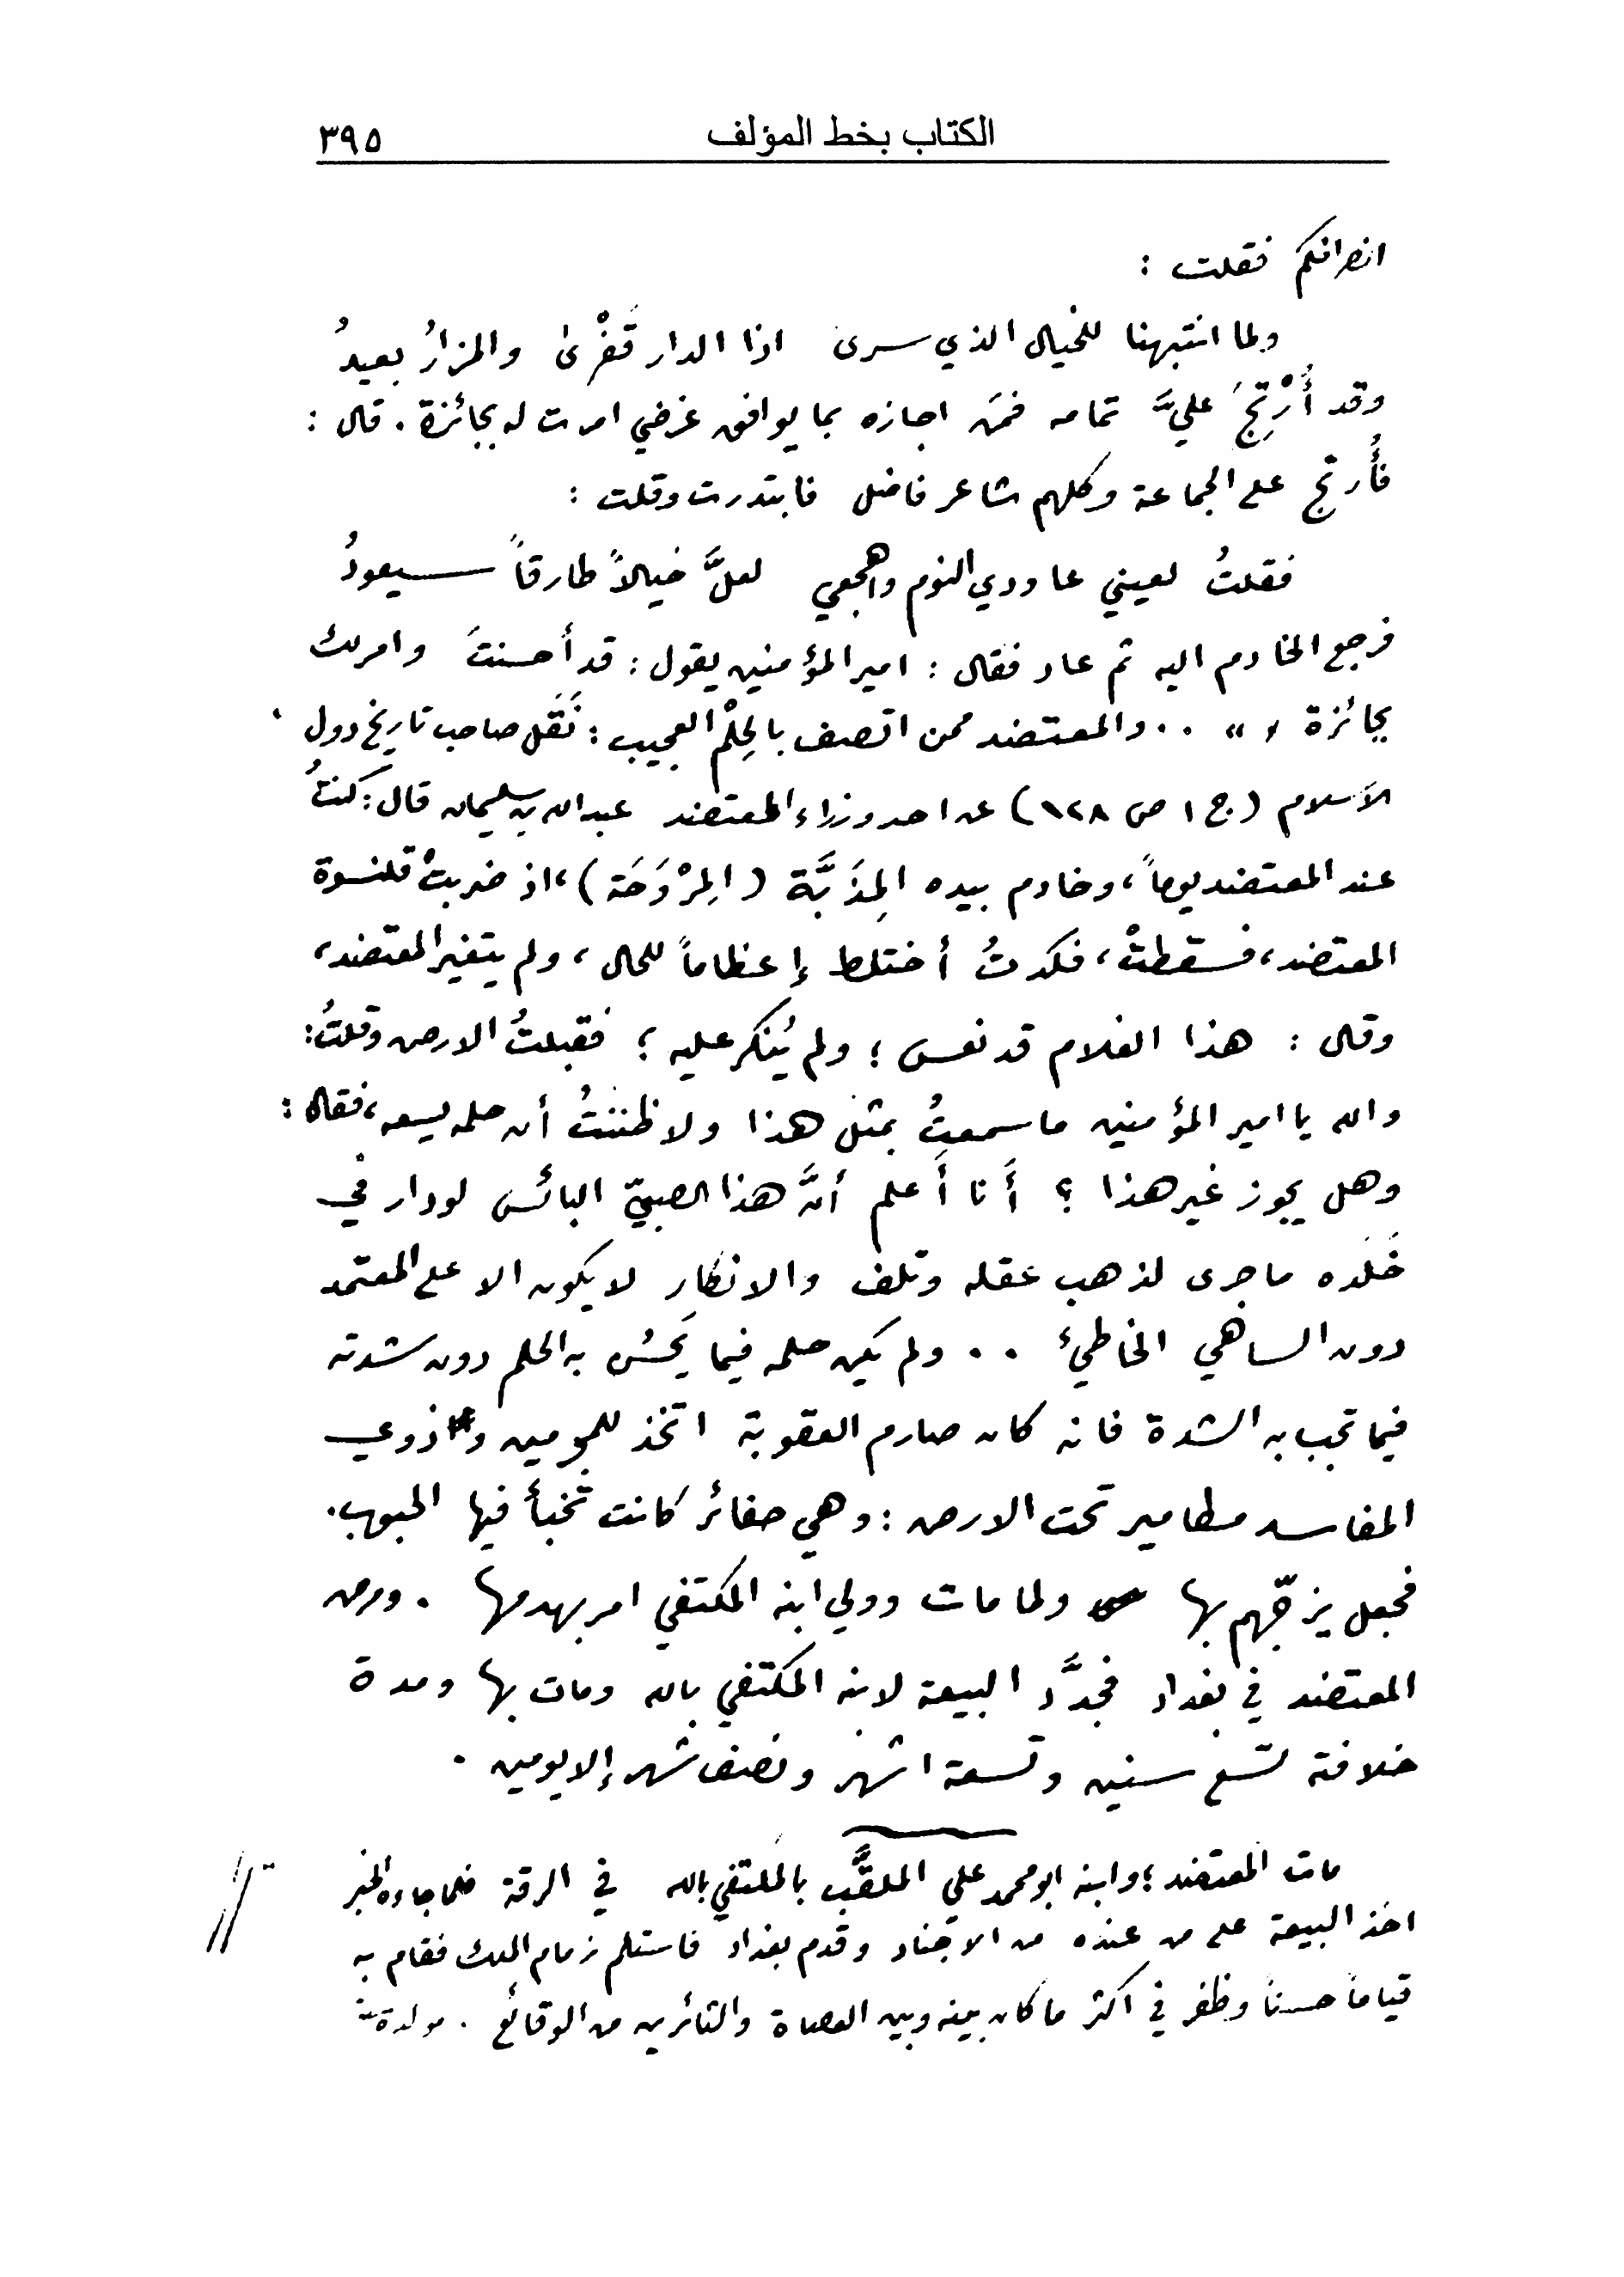 الكتاب بخط المؤلف ٣٩٥
انصرافكم فقلت :
ولما انتبهنا للخيال الذي سرى اذا الدار قَفْرى والمزارُ بعيدُ
وقد أُرْتِجَ عليَّ تمامه فمَن اجازه بما يوافق غرضي امرت له بجائزة . قال :
فأُرتج على الجماعة وكلهم شاعر فاضل فابتدرت وقلت :
فقلتُ لعيني عاودي النوم واهجعي لعلَّ خيالاً طارقاً سيعودُ
فرجع الخادم اليه ثم عاد فقال : امير المؤمنين يقول : قد أحسنتَ وامر لك
بجائزة ، » .. والمعتضد ممن اتصف بالحِلْم العجيب : نَقَل صاحب تاريخ دول
الاسلام (ج ١ ص ١٢٨) عن احد وزراء المعتضد عبدالله بن سليمان قال : كنتُ
عند المعتضد يوماً ، وخادم بيده المِذَبَّة (المِرْوَحَة) ، اذ ضربتْ قلنسوة
المعتضد ، فسقطتْ ، فكدتُ أختلط إعظاماً للحال ، ولم يتغير المعتضد ،
وقال : هذا الغلام قد نعس ؛ ولم يُنكر عليه ؛ فقبلتُ الارض وقلتُ :
والله يا امير المؤمنين ما سمعتُ بمثل هذا ولا ظننتُ أن حلمه يسعه ، فقال :
وهل يجوز غير هذا ؟ أَنا أَعلم أنَّ هذا الصبيّ البائس لو دار في
خَلَده ما جرى لذهب عقله وتلف والانكار لا يكون الا على المعتمد
دون الساهي الخاطئ .. ولم يكن حلمه فيما يَحسُن به الحلم دون شدته
فيما تجب به الشدة فانه كان صارم العقوبة اتخذ للمجرمين و ذوي
المفاسد مطامير تحت الارض : وهي حفائر كانت تُخبأ فيها الحبوب .
فجعل يزجّهم بها ولما مات وولي ابنه المكتفي امر بهدمها . ومرض
المعتضد في بغداد فجدَّد البيعة لابنه المكتفي بالله ومات بها ومدة
خلافته تسع سنين وتسعة اشهر ونصف شهر إلا يومين .
مات المعتضد ؛ وابنه ابو محمد علي الملقَّب بالمكتفي بالله في الرقة فلما جاءه الخبر
اخذ البيعة على من عنده من الاجناد وقدم بغداد فاستلم زمام الملك فقام به
قياماً حسناً وظفر في اكثر ما كان بينه وبين العصاة والثائرين من الوقائع .